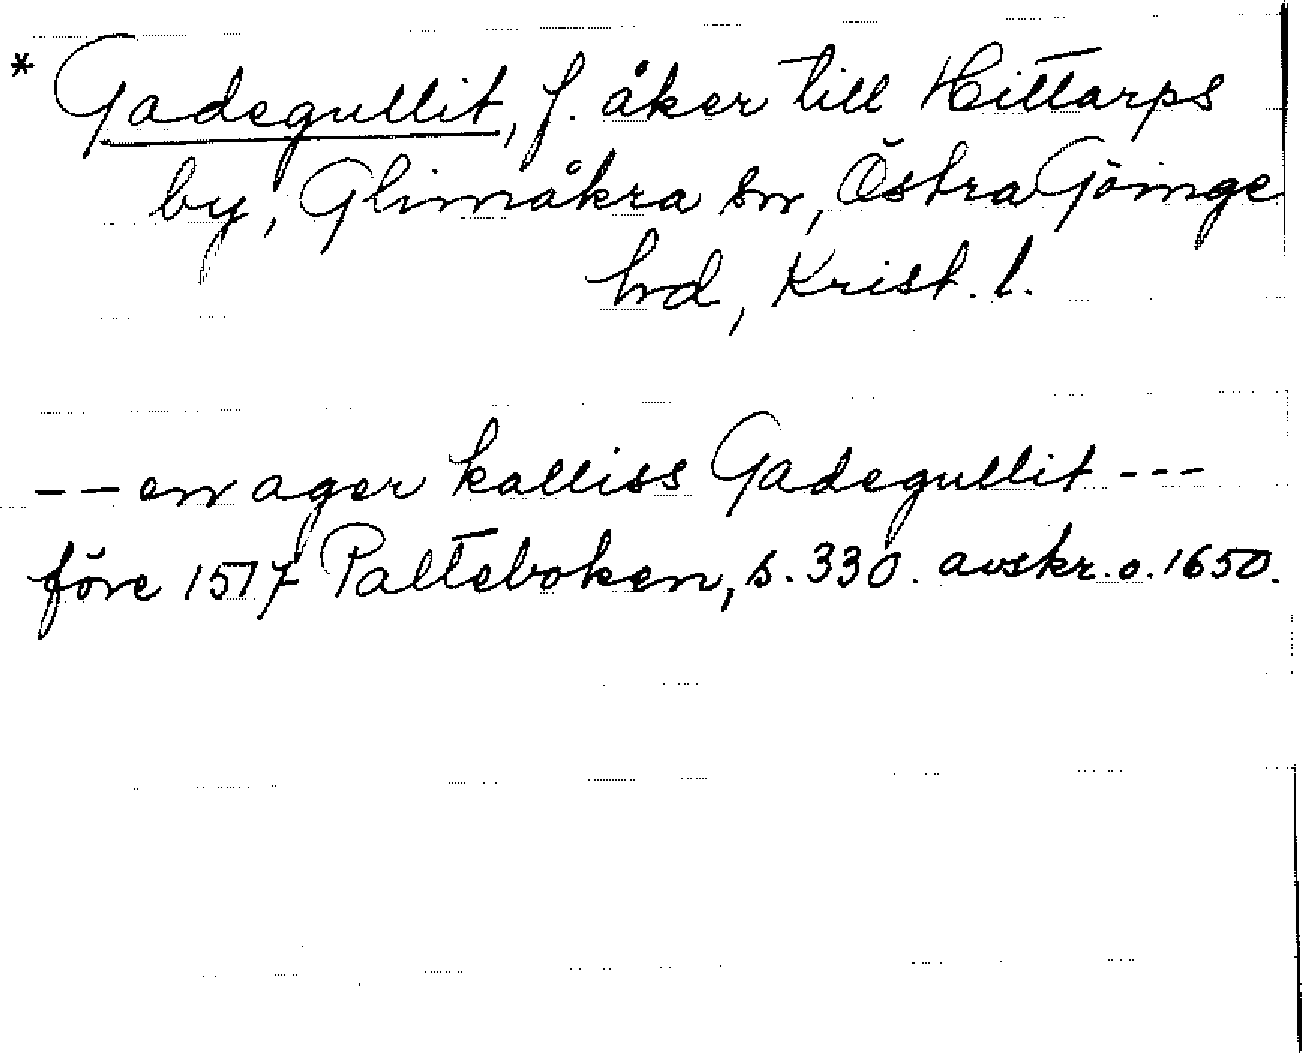 * Gadegullit, f. åker till Hittarps
by, Glimåkra sn, Östra Göinge
hd, Krist. l.
-- en ager kalliss Gadegullit ---
före 1517 Palteboken, s. 330. avskr. o. 1650.